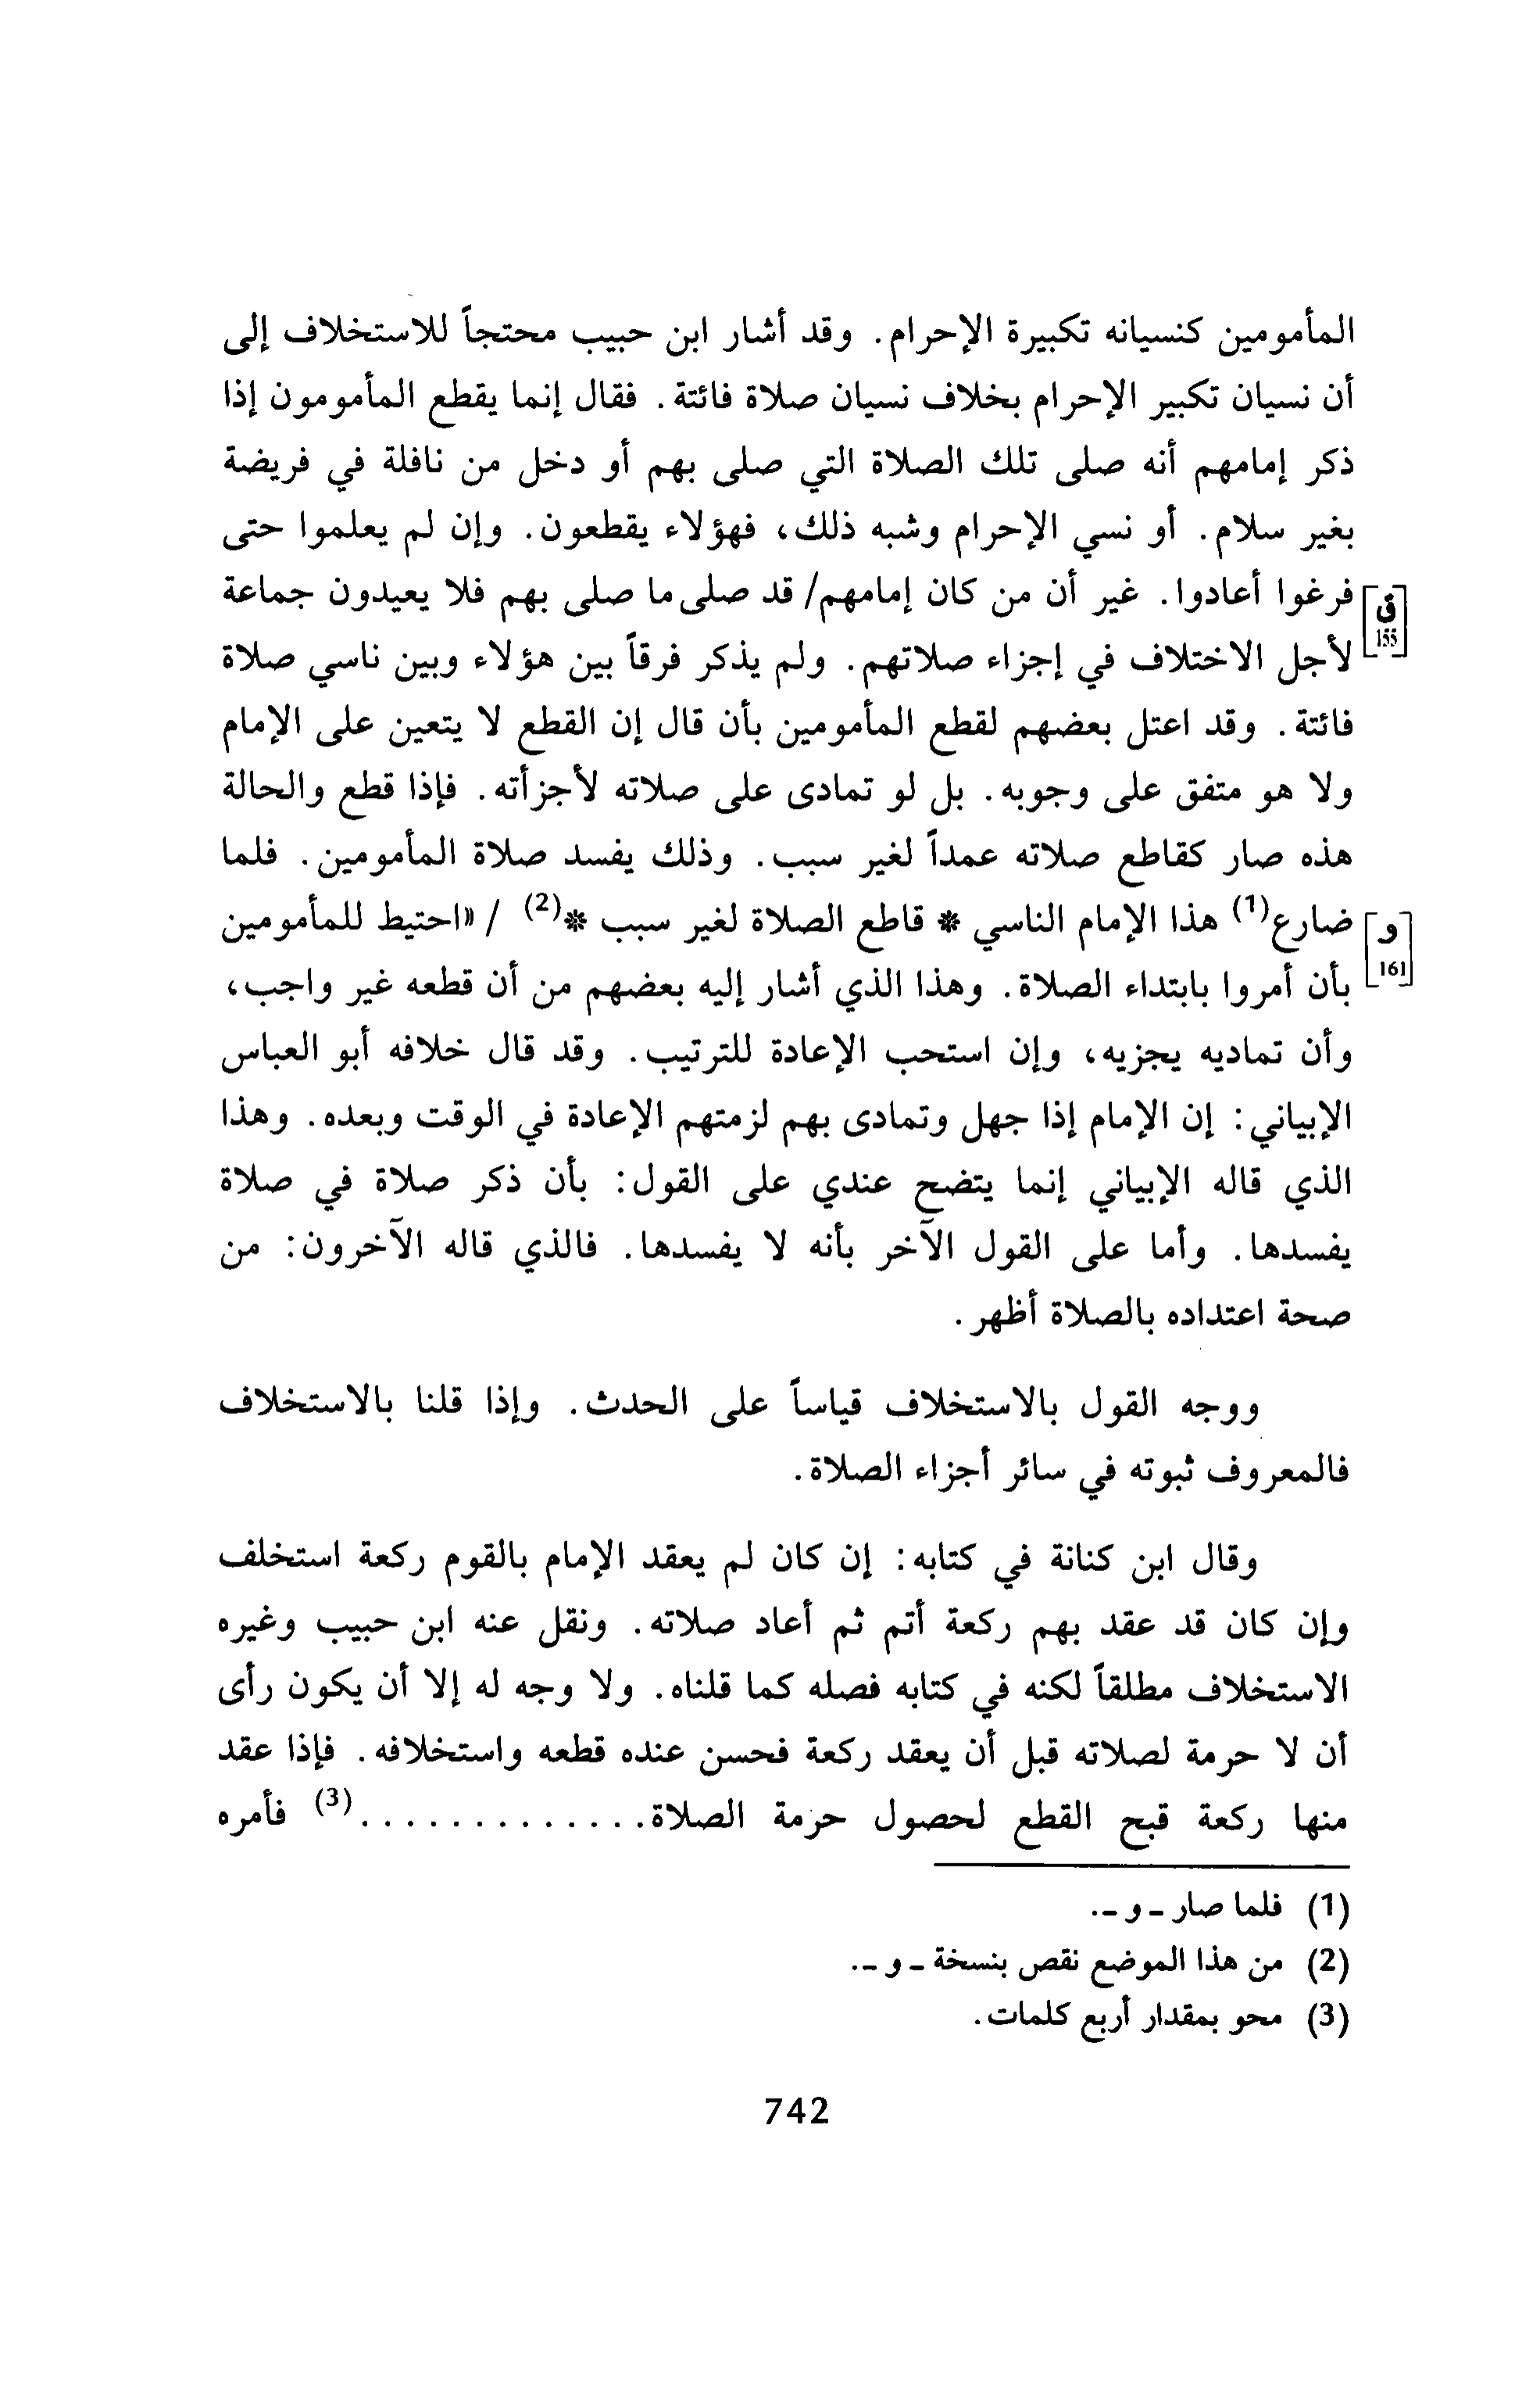 المأمومين كنسيانه تكبيرة الإحرام. وقد أشار ابن حبيب محتجاً للاستخلاف إلى
أن نسيان تكبير الإحرام بخلاف نسيان صلاة فائتة. فقال إنما يقطع المأمومون إذا
ذكر إمامهم أنه صلى تلك الصلاة التي صلى بهم أو دخل من نافلة في فريضة
بغير سلام. أو نسي الإحرام وشبه ذلك، فهؤلاء يقطعون. وإن لم يعلموا حتى
فرغوا أعادوا. غير أن من كان إمامهم/ قد صلى ما صلى بهم فلا يعيدون جماعة
[ق 155]
لأجل الاختلاف في إجزاء صلاتهم. ولم يذكر فرقاً بين هؤلاء وبين ناسي صلاة
فائتة. وقد اعتل بعضهم لقطع المأمومين بأن قال إن القطع لا يتعين على الإمام
ولا هو متفق على وجوبه. بل لو تمادى على صلاته لأجزأته. فإذا قطع والحالة
هذه صار كقاطع صلاته عمداً لغير سبب. وذلك يفسد صلاة المأمومين. فلما
ضارع(1) هذا الإمام الناسي * قاطع الصلاة لغير سبب *(2) / «احتيط للمأمومين
[و 161]
بأن أمروا بابتداء الصلاة. وهذا الذي أشار إليه بعضهم من أن قطعه غير واجب،
وأن تماديه يجزيه، وإن استحب الإعادة للترتيب. وقد قال خلافه أبو العباس
الإبياني: إن الإمام إذا جهل وتمادى بهم لزمتهم الإعادة في الوقت وبعده. وهذا
الذي قاله الإبياني إنما يتضح عندي على القول: بأن ذكر صلاة في صلاة
يفسدها. وأما على القول الآخر بأنه لا يفسدها. فالذي قاله الآخرون: من
صحة اعتداده بالصلاة أظهر.
ووجه القول بالاستخلاف قياساً على الحدث. وإذا قلنا بالاستخلاف
فالمعروف ثبوته في سائر أجزاء الصلاة.
وقال ابن كنانة في كتابه: إن كان لم يعقد الإمام بالقوم ركعة استخلف
وإن كان قد عقد بهم ركعة أتم ثم أعاد صلاته. ونقل عنه ابن حبيب وغيره
الاستخلاف مطلقاً لكنه في كتابه فصله كما قلناه. ولا وجه له إلا أن يكون رأى
أن لا حرمة لصلاته قبل أن يعقد ركعة فحسن عنده قطعه واستخلافه. فإذا عقد
منها ركعة قبح القطع لحصول حرمة الصلاة.............(3) فأمره
(1) فلما صار ـ و ـ.
(2) من هذا الموضع نقص بنسخة ـ و ـ.
(3) محو بمقدار أربع كلمات.
742